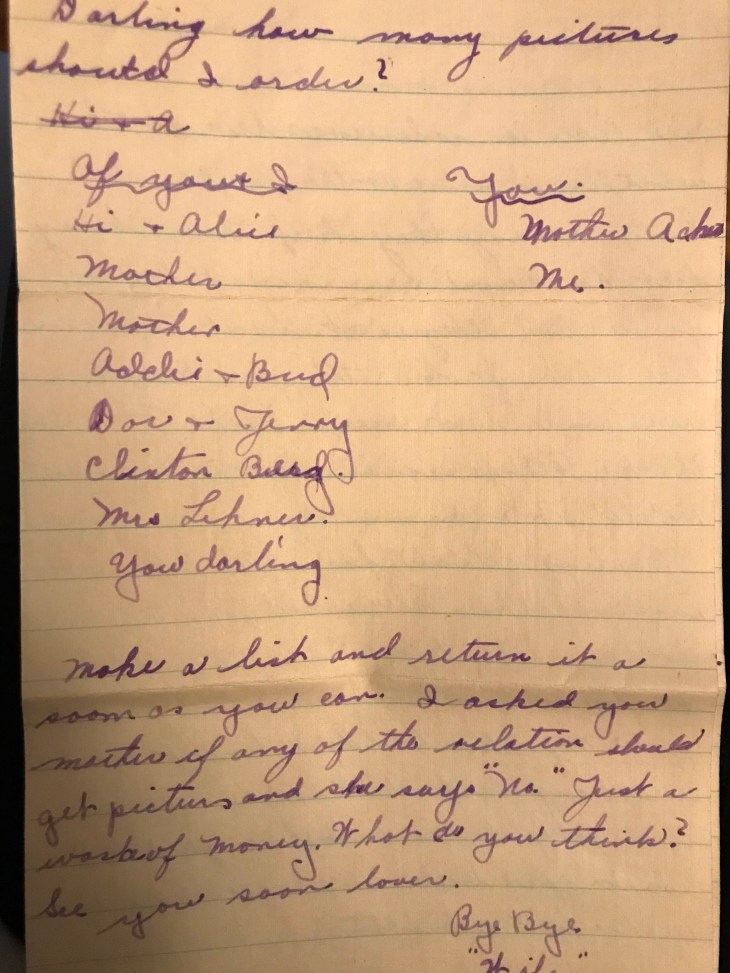 Darling how many pictures
should I order?
Hi + A
Of you + I
You.
Hi + Alice
Mother
Mother
Me.
Mother
Addie + Bud
Dor + Jerry
Clinton
Mrs Lehner.
You darling
Make a list and return it a
soon as you can. I asked you
mother if any of the relation should
get picturs and she says "No." Just a
waste of money. What do you think?
See you soon lover.
Bye Bye